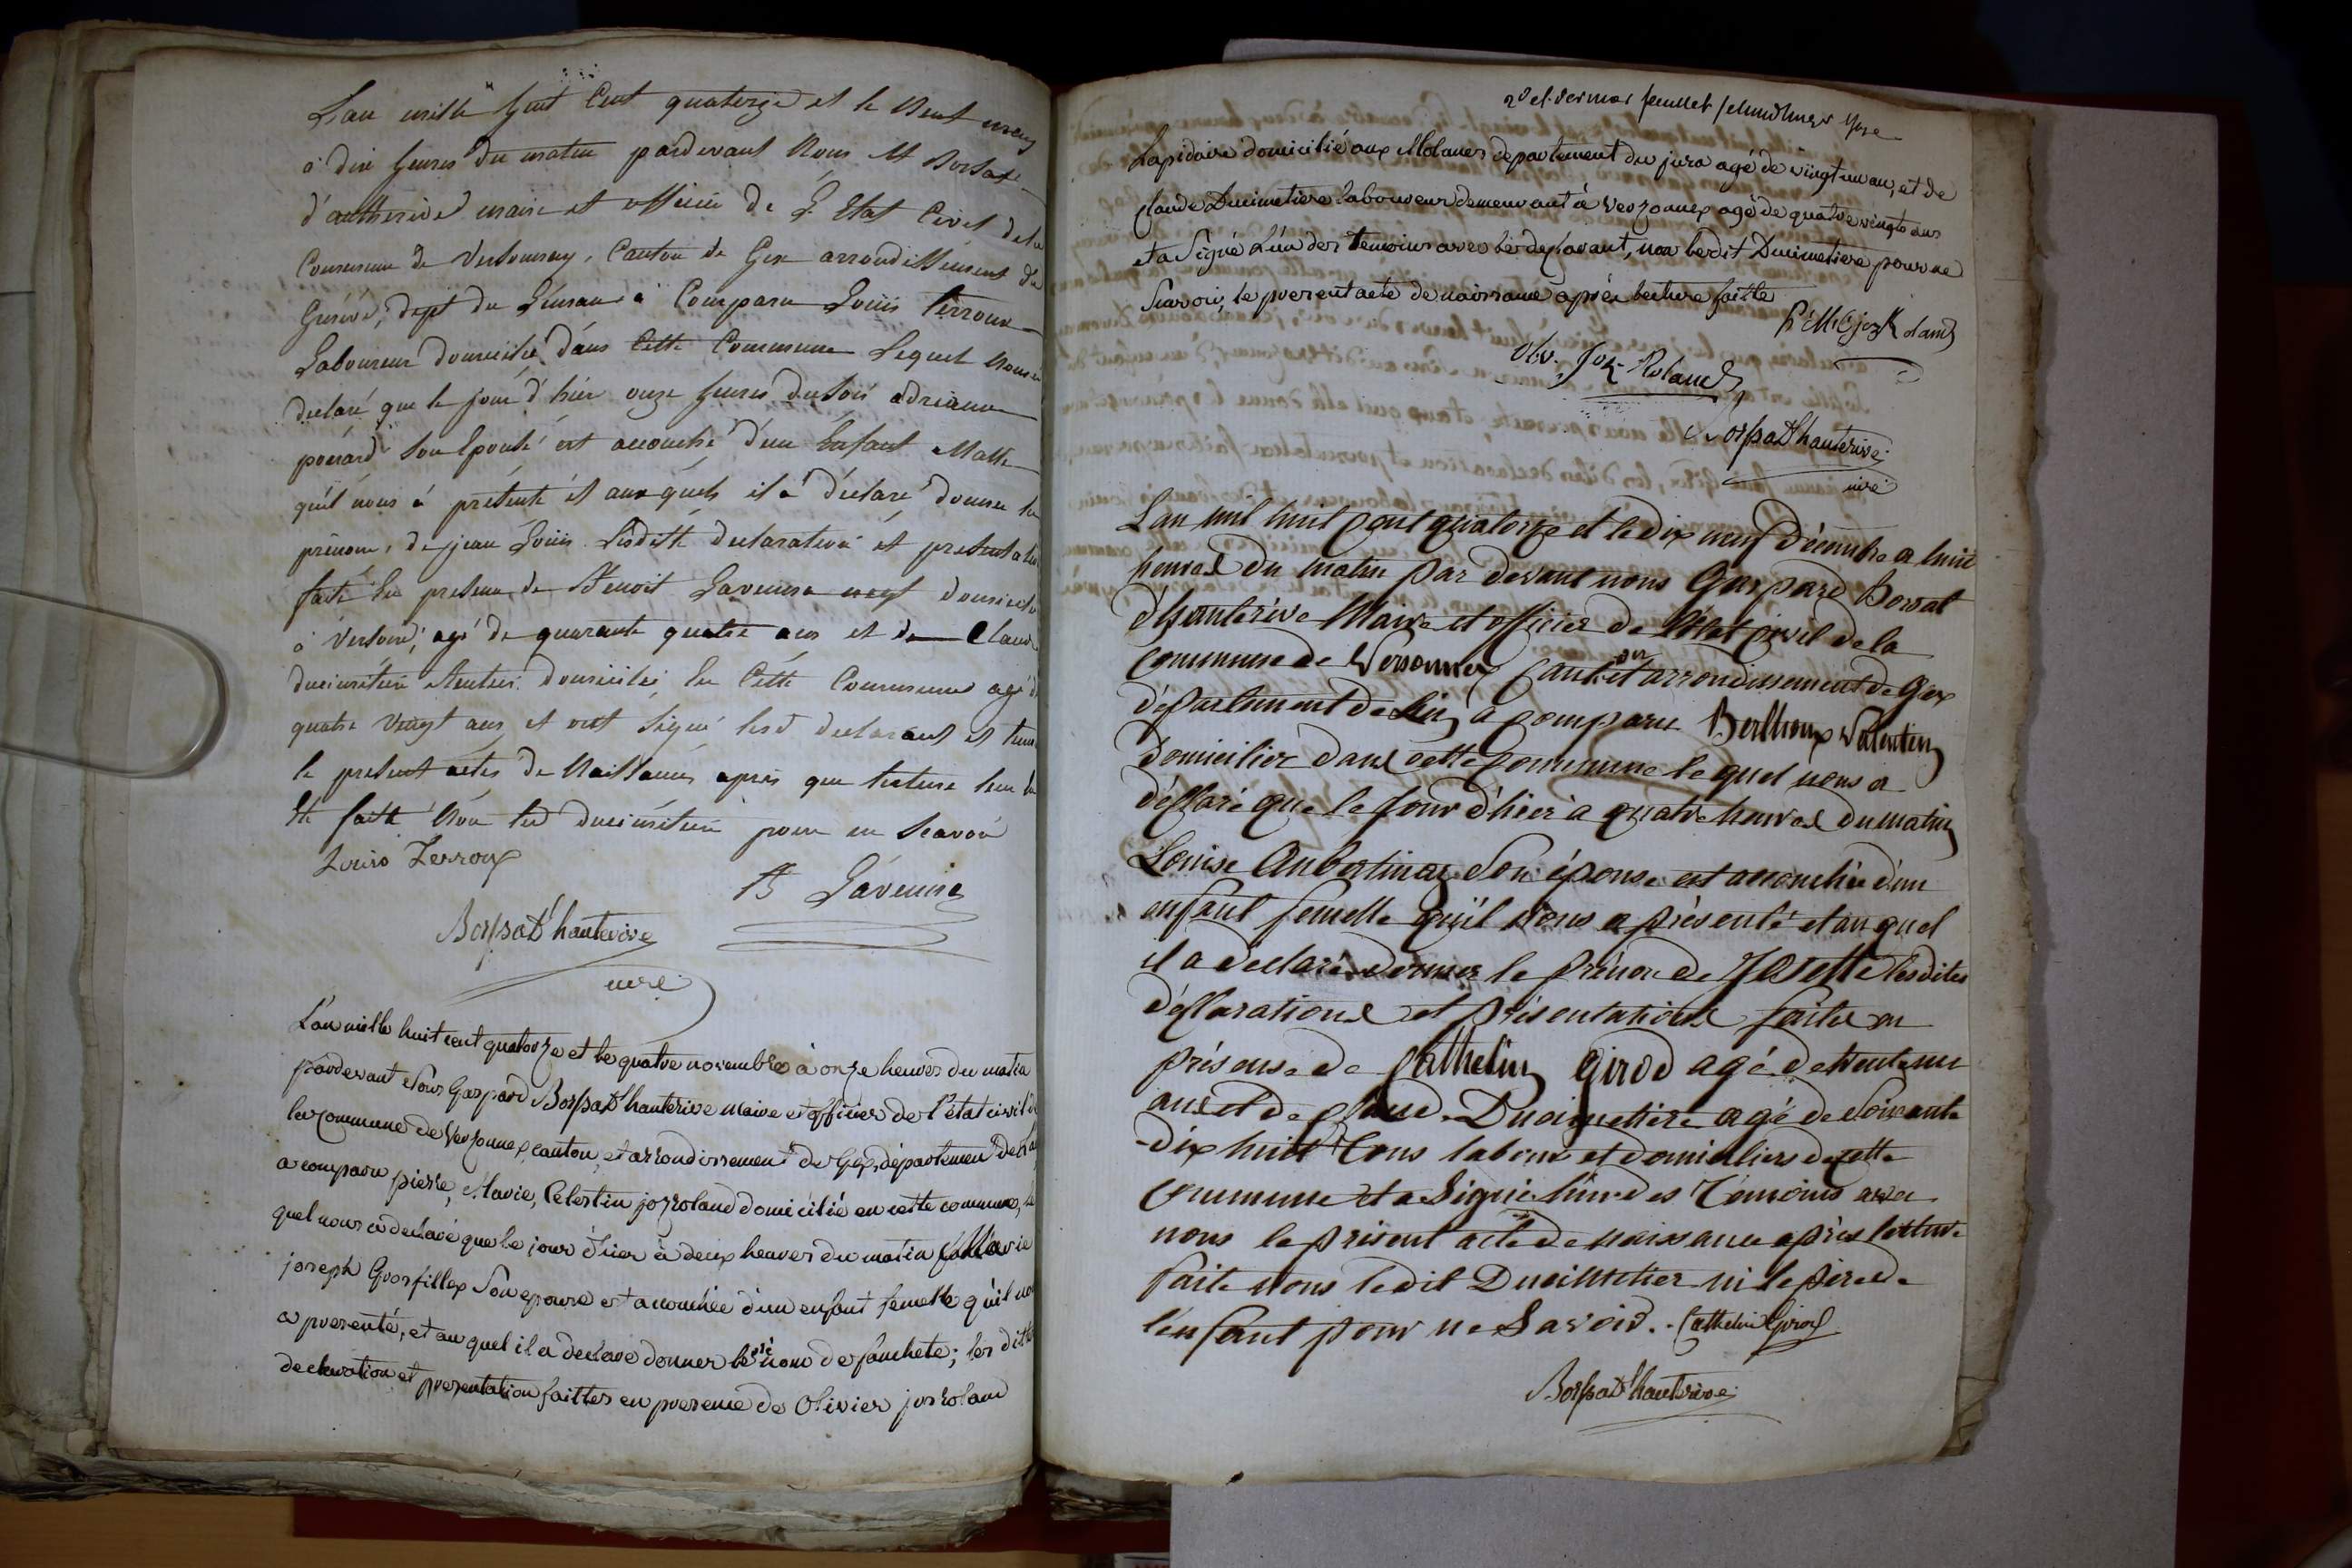 L'an mille huit Cent quatorze et le Neuf mars
à dix heures du matin pardevant Nous M Borsat
d'authérive maire et officier de L'Etat Civil de la
Commune de Versonnay, Canton de Gex arrondissement de
Genève, dept du Léman à Comparu Louis Terroux
Laboureur domicilié dans Cette Commune Lequel nous a
declaré que le jour d'hier onze heures du soir adrienne
son Epouse est accouché d'un Enfant Malle
qu'il nous à présenté et auxquels il à déclaré donner le
prénom, de jean Louis Lesditte declaration et presentation
faite En presence de Benoit Lavenise domicilié
à Versonné, agé de quarante quatre ans et de Claude
ducimétière domicilié En Cette Commune agé de
quatre Vingt ans et ont signé lesd declarant et temoin
le présent actes de Naissances après que lecture leur à
été faite Non led ducimétière pour ne scavoir
Louis Terroux
B Lavenise
Borssat d'hauterive
mre
L'an mille huit cent quatorze et le quatre novembre à onze heures du matin
pardevant Nous Gaspard Borssat d'hauterive Maire et officier de l'état civil de
la Commune de Verzonnex, canton, et arrondissement de Gex, département de l'ain
a comparu pierre, Marie, Célestin jozroland domicilié en cette commune, le
quel nous a declaré que le jour d'hier à deux heures du matin Marie
joseph Grosfillex Son epouse est accouchée d'un enfant femelle qu'il nous
a presenté, et au quel il a declaré donner le pré nom de fanchete; les dittes
declaration et presentation faittes en presence de Olivier jozroland
2e et dernier feuillet
Lapidaire domicilié aux Molunes departement du jura agé de vingt un an, et de
Claude Ducimetiere laboureur demeurant à Verzonnex agé de quatre vingts ans
et a Signé L'un des temoins avec le declarant, non ledit Ducimetiere pour ne
Savoir, le present acte de naissance après lecture faitte
P. M. C. jozRoland
Oliv. Joz-Roland
Borssat d'hauterive
mre
L'an mil huit cent quatorze et le dix neuf Décembre a huit
heures du matin par devant nous Gaspard Borsat
d'hauterive Maire et officier de l'état civil de la
commune de Versonnex canton et arrondissement de Gex
département de l'ain a comparu Berthoux Valentin
domicilier dans cette commune le quel nous a
déclaré que le jour d'hier à quatre heures du matin
Louise son épouse est accouchée d'un
enfant femelle qu'il nous a présenté et au quel
il a déclaré donner le prénon de Josette lesdites
déclarations et présentations faites en
présense de Cathelin Girod agé de trente un
ans et de Claude Ducimetiere agé de Soixante
-dix huit Tous labour et domiciliers de cette
commune et a Signé l'un des Témoins avec
nous le présent acte de naissance après lecture
faite nons ledit Ducimetier ni le père de
l'enfant pour ne Savoir. Cathelin Girod
Borssat d'hauterive